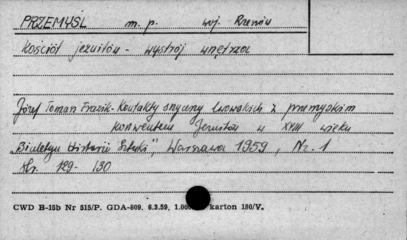 PRZEMYŚL m. p. woj. Rzeszów
Kościół jezuitów - wystrój wnętrza
Józef Tomasz Frazik - Kontakty snycerzy lwowskich z przemyskim
konwentem Jezuitów w XVIII wieku
„Biuletyn Historii Sztuki", Warszawa 1959, Nr. 1
str. 129 - 130
CWD B-15b Nr 515/P. GDA-809. 6.3.59, 1.000 karton 180/V.